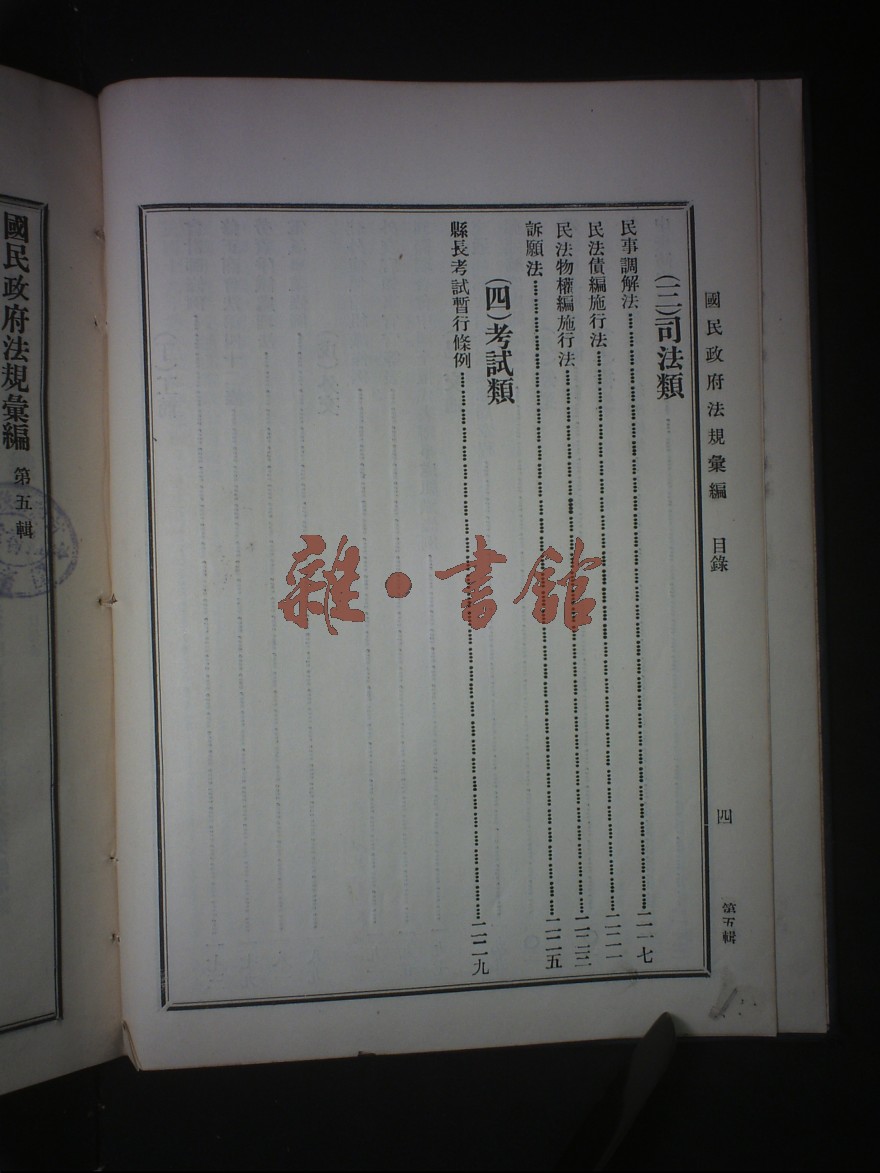 國民政府法規彙編 目錄 四 第五輯
(三)司法類
民事調解法……二一七
民法債編施行法……二二一
民法物權編施行法……二二三
訴願法……二二五
(四)考試類
縣長考試暫行條例……二二九
國民政府法規彙編 第五輯
雜·書館